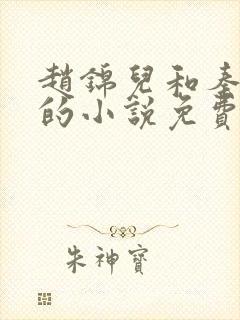 趙錦兒和秦
的小說免費
朱神寶